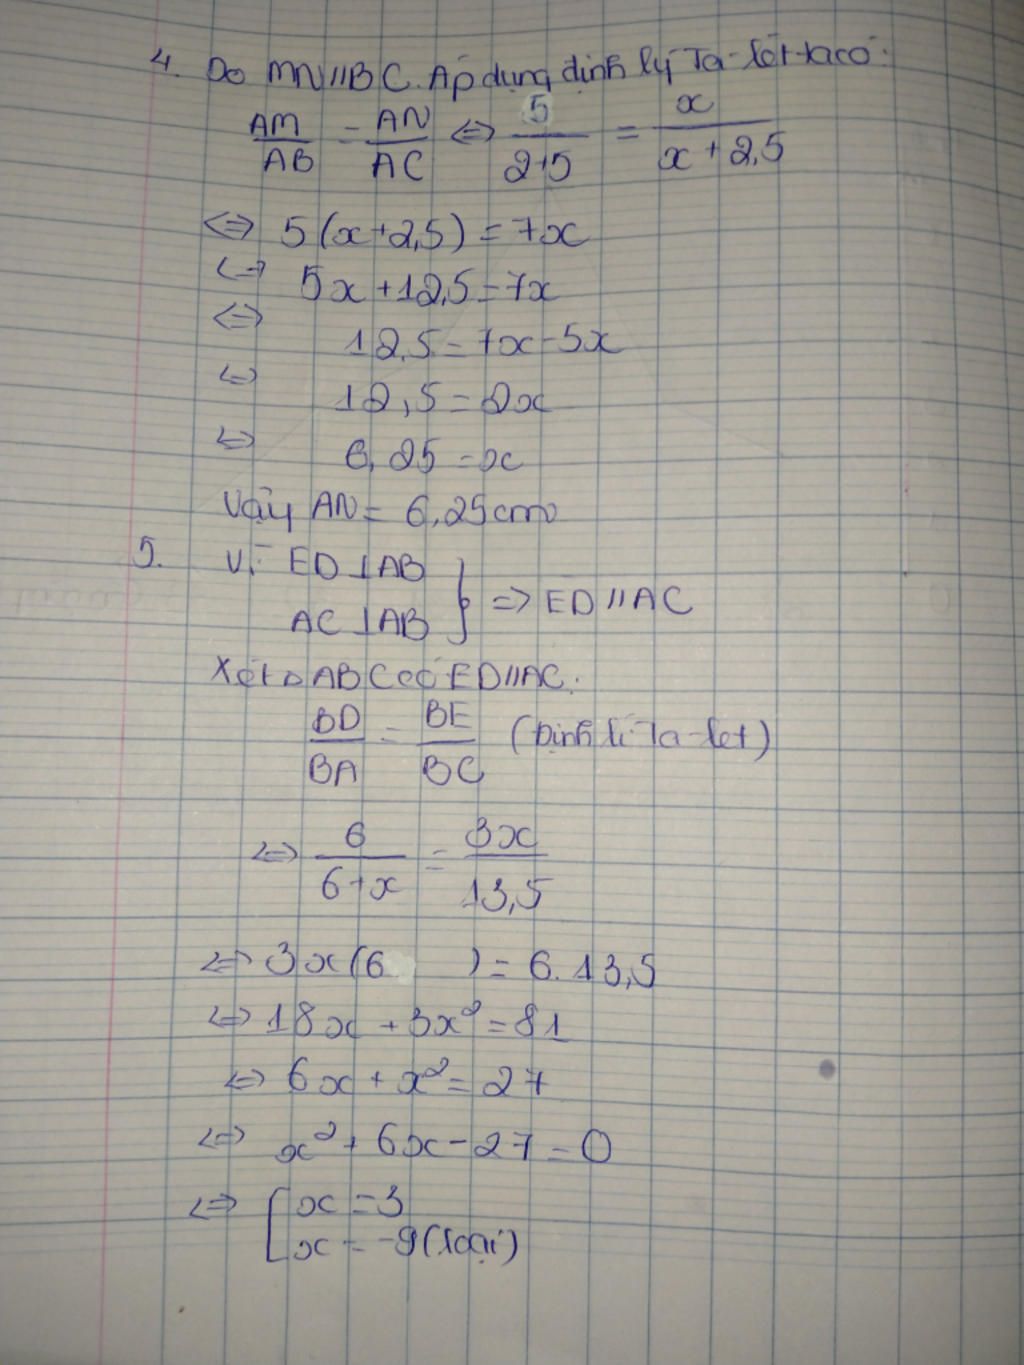 4. Do MN//BC. Áp dụng định lý Ta-lét ta có:
AM/AB = AN/AC ⇔ 5/2+5 = x/x+2,5
⇔ 5(x+2,5) = 7x
⇔ 5x+12,5 = 7x
⇔ 12,5 = 7x-5x
⇔ 12,5 = 2x
⇔ 6,25 = x
Vậy AN = 6,25cm
5. Vì ED⊥AB
AC⊥AB } ⇒ ED//AC
Xét △ABC có ED//AC:
BD/BA = BE/BC (Định lí Ta-let)
⇔ 6/6+x = 3x/13,5
⇔ 3x(6 ) = 6.13,5
⇔ 18x + 3x² = 81
⇔ 6x + x² = 27
⇔ x² + 6x - 27 = 0
⇔ [ x = 3
x = -9 (loại)